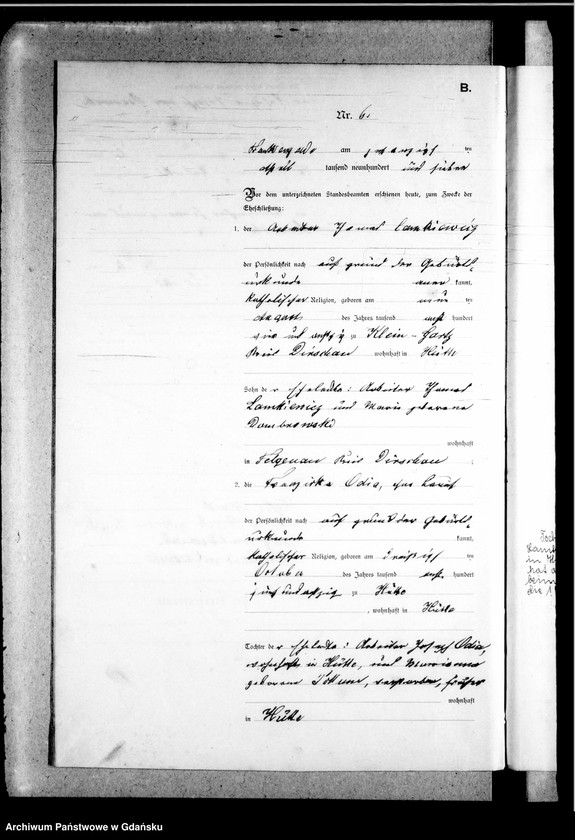 B.
Nr. 6.
am zwanzig ten
April tausend neunhundert und sieben
Vor dem unterzeichneten Standesbeamten erschienen heute, zum Zwecke der
Eheschließung:
1. der Arbeiter Thomas Lamkiewicz
der Persönlichkeit nach auf grund der Geburts-
urkunde aner kannt,
katholischer Religion, geboren am neun ten
August des Jahres tausend acht hundert
vier und achtzig zu Klein-Gartz
Kreis Dirschau wohnhaft in Hütte
Sohn der Eheleute: Arbeiter Thomas
Lamkiewicz und Marie geborene
Dombrowski
wohnhaft
in Felgenau Kreis Dirschau
2. die Franziska Odia, ohne Beruf
der Persönlichkeit nach auf grund der Geburts-
urkunde kannt,
katholischer Religion, geboren am dreißig ten
Oktober des Jahres tausend acht hundert
fünf und achtzig zu Hütte
, wohnhaft in Hütte
Tochter der Eheleute: Arbeiter Joseph Odia,
wohnhaft in Hütte, und Marianna
geborene verstorben, früher
wohnhaft
in Hütte
Archiwum Państwowe w Gdańsku